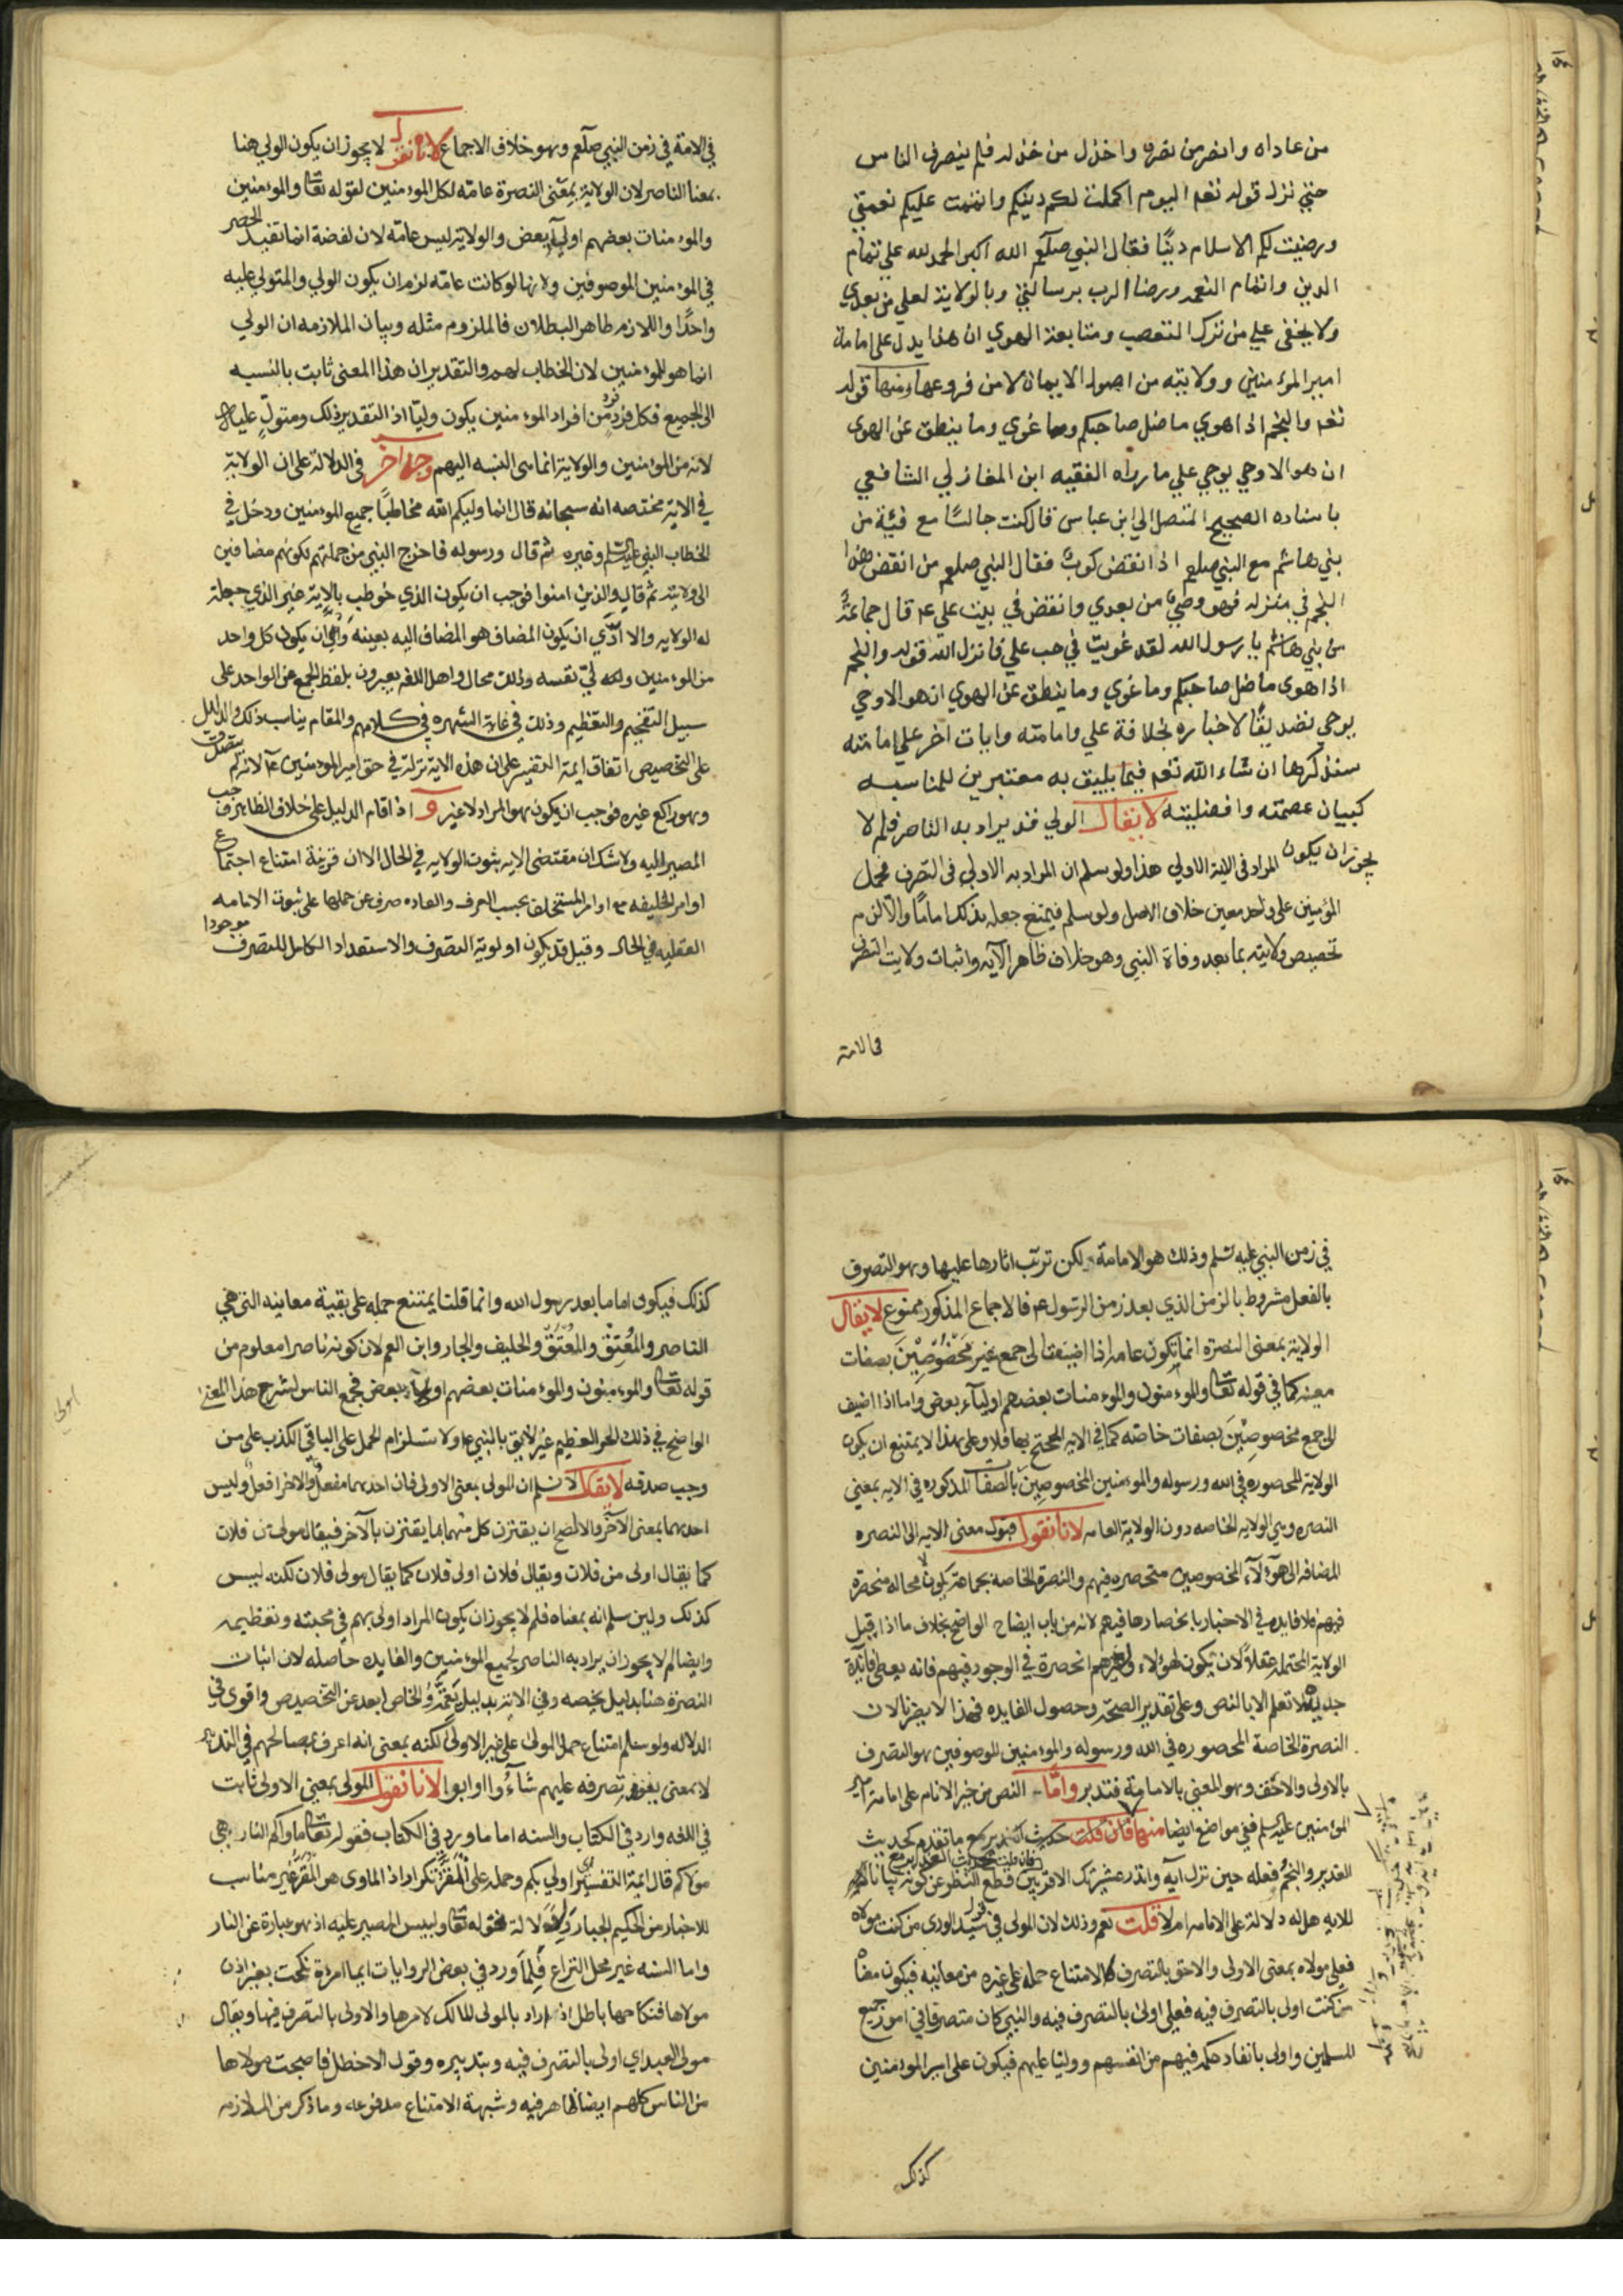 من عاداه وانصر من نصره واخذل من خذله فلم ينصرف الناس
حتي نزل قوله تعم اليوم اكملت لكم دينكم واتممت عليكم نعمتي
ورضيت لكم الاسلام دينًا فقال النبي صلعم الله اكبر الحمد لله علي تمام
الدين واتمام النعمه ورضا الرب برسالتي وبالولاية لعلي من بعدي
ولا يخفى علي من ترك التعصب ومتابعة الهوي ان هذا يدل على امامة
امير المؤمنين وولايته من اصول الايمان لا من فروعها ومنها قوله
تعم والنجم اذا هوي ما ضل صاحبكم وما غوي وما ينطق عن الهوى
ان هو الا وحي يوحي علي ما رواه الفقيه ابن المغازلي الشافعي
باسناده الصحيح المتصل الي ابن عباس قال كنت جالسًا مع فئية من
بني هاشم مع النبي صلعم اذ انقض كوكب فقال النبي صلعم من انقض هذا
النجم في منزله فهو وصيي من بعدي وانقض في بيت علي عم قال جماعة
من بني هاشم يا رسول الله لقد غويت في حب علي فانزل الله قوله والنجم
اذا هوى ما ضل صاحبكم وما غوي وما ينطق عن الهوي ان هو الا وحي
يوحي تصديقًا لاخباره بخلافة علي وامامته وايات اخر علي امامته
سنذكرها ان شاء الله تعم فيما يليق به معتبرين للمناسبه
كبيان عصمته وافضليته لا يقال الولي قد يراد به الناصر فلم لا
يجوز ان يكون المراد في الاية الاولي هذا ولو سلم ان المراد به الاولي في التصرف فحمل
المؤمنين على واحد معين خلاف الاصل ولو سلم فيمتنع جعله بذلك امامًا والا لزم
تخصيص ولايته بما بعد وفاة النبي وهو خلاف ظاهر الآيه واثبات ولايت التصرف
في الامة
في الامة في زمن النبي صلعم وهو خلاف الاجماع لانا نقول لا يجوز ان يكون الولي هنا
بمعنا الناصر لان الولاية بمعنى النصرة عامه لكل المؤمنين لقوله تعا والمؤمنين
والمؤمنات بعضهم اولياء بعض والولاية ليس عامه لان لفضة انما تفيد الحصر
في المؤمنين الموصوفين ولانها لو كانت عامه لزم ان يكون الولي والمتولي عليه
واحدًا واللازم ظاهر البطلان فالملزوم مثله وبيان الملازمه ان الولي
انما هو للمؤمنين لان الخطاب لهم والتقدير ان هذا المعنى ثابت بالنسبه
الى الجميع فكل فرد من افراد المؤمنين يكون وليا اذ التقدير ذلك ومتولٍّ عليه
لانه من المؤمنين والولاية انما هى النسبه اليهم وجه اخر في الدلالة على ان الولاية
في الاية مختصه انه سبحانه قال انما وليكم الله مخاطبًا جميع المؤمنين ودخل في
الخطاب النبي عليه السلم وغيره ثم قال ورسوله فاخرج النبي من جملتهم لكونهم مضافين
الى ولايته ثم قال والذين امنوا فوجب ان يكون الذي خوطب بالاية غير الذي جعلت
له الولايه والا ادّي ان يكون المضاف هو المضاف اليه بعينه والى ان يكون كل واحد
من المؤمنين ولي نفسه وذلك محال واهل اللغه يعبرون بلفظ الجمع عن الواحد على
سبيل التفخيم والتعظيم وذلك في غاية الشهره في كلامهم والمقام يناسب ذلك والدليل
على التخصيص اتفاق ايمة التفسير على ان هذه الاية نزلة في حق امير المؤمنين عم لانه لم يتصدق
وهو راكع غيره فوجب ان يكون هو المراد لا غير و اذا قام الدليل على خلاف الظاهر وجب
المصير اليه ولا شك ان مقتضى الايه ثبوت الولايه في الحال الا ان قرينة امتناع اجتماع
اوامر الخليفه مع اوامر المستخلف بحسب العرف والعاده صرف عن حملها على ثبوت الامامه
الفعليه في الحال وقيل قد يكون اولوية التصرف والاستعداد الكامل للتصرف موجودا
في زمن النبي عليه السلم وذلك هو الامامة لكن ترتب اثارها عليها وهو التصرف
بالفعل مشروط بالزمن الذي بعد زمن الرسول عم فالاجماع المذكور ممنوع لا يقال
الولاية بمعنى النصرة انما تكون عامه اذا اضيفت الى جمع غير مخصوصين بصفات
معينه كما في قوله تعا والمؤمنون والمؤمنات بعضهم اولياء بعض واما اذا اضيف
الى جمع مخصوصين بصفات خاصه كما في الايه المحتج بها فلا وعلى هذا لا يمتنع ان يكون
الولاية المحصوره في الله ورسوله والمؤمنين المخصوصين بالصفات المذكوره في الايه بمعني
النصره وهي الولايه الخاصه دون الولاية العامه لانا نقول فيكون معنى الايه الى النصره
المضافه الى هؤلآء المخصوصين منحصره فيهم والنصرة الخاصه بجماعة يكون لا محاله منحصرة
فيهم فلا فايده في الاخبار بانحصارها فيهم لانه من باب ايضاح الواضح بخلاف ما اذا قيل
الولاية المحتمله عقلاً لان يكون لهؤلاء ولغيرهم انحصرة في الوجود فيهم فانه يعطي فائدة
جديده لا تعلم الا بالنص وعلى تقدير الصحة وحصول الفايده فهذا لا يضرنا لان
النصرة الخاصة المحصوره في الله ورسوله والمؤمنين الموصوفين هو التصرف
بالاولى والاحق وهو المعني بالامامة فتدبر واما النص من خير الانام على امامة امير
المؤمنين عليه السلم ففي مواضع ايضا منها فان قلت حديث الغدير مع ما تقدم كحديث
الغدير والنجم فعله حين نزل آيه وانذر عشيرتك الاقربين قطع النظر عن كونه بيانا
للايه هل له دلالة على الامامه ام لا قلت نعم وذلك لان المولى في قول سيد الورى من كنت مولاه
فعلي مولاه بمعنى الاولى والاحق بالتصرف لامتناع حمله على غيره من معانيه فيكون معناه
من كنت اولى بالتصرف فيه فعلي اولى بالتصرف فيه والنبي كان متصرفا في امور جميع
المسلمين واولى بانفاد حكمه فيهم من انفسهم ووليا عليهم فيكون على امير المؤمنين
كذلك
كذلك فيكون اماما بعد رسول الله وانما قلنا يمتنع حمله على بقية معانيه التي هي
الناصر والمُعتِق والمُعتَق والحليف والجار وابن العم لان كونه ناصرا معلوم من
قوله تعا والمؤمنون والمؤمنات بعضهم اولياء بعض فجمع الناس لشرح هذا المعنى
الواضح في ذلك الحر العظيم غير لايق بالنبي عم ولاستلزام الحمل على الباقى الكذب على من
وجب صدقه لا يقال لا نسلم ان المولى بمعنى الاولى فان احدهما مفعل والاخر افعل وليس
احدهما بمعنى الآخر والا لصح ان يقترن كل منهما بما يقترن به الآخر فيقال مولى من فلان
كما يقال اولى من فلان ويقال فلان اولى فلان كما يقال مولى فلان لكنه ليس
كذلك ولين سلم انه بمعناه فلم لا يجوز ان يكون المراد اولى بهم في محبته وتعظيمه
وايضا لم لا يجوز ان يراد به الناصر لجميع المؤمنين والفايده حاصله لان اثبات
النصرة هنا بدليل يخصه وفي الاية بدليل يعمه والخاص ابعد عن التخصيص واقوى في
الدلاله ولو سلم امتناع حمل المولى على غير الاولى لكنه بمعنى انه اعرف بمصالحهم في التدبير
لا بمعنى ينفذ تصرفه عليهم شاءُوا او ابوا لانا نقول المولى بمعني الاولى ثابت
في اللغه وارد في الكتاب والسنه اما ما ورد في الكتاب فقوله تعا ماواكم النار هي
مولاكم قال ايمة التفسير اي اولي بكم وحمله على المقر تكرار اذ الماوى هو المقر غير مناسب
للاخبار من الحكيم الجبار ولدلالة قوله تعا وبيس المصير عليه اذ هو عبارة عن النار
واما السنه غير محل النزاع فلما ورد في بعض الروايات ايما امرءة نكحت بغير اذن
مولاها فنكاحها باطل اذ اراد بالمولى المالك لامرها والاولى بالتصرف فيها ويقال
مولى العبد اي اولى بالتصرف فيه وبتدبيره وقول الاخطل فاصبحت مولاها
من الناس كلهم ايضا ظاهر فيه وشبهة الامتناع مدفوعه وما ذكر من الملازمه